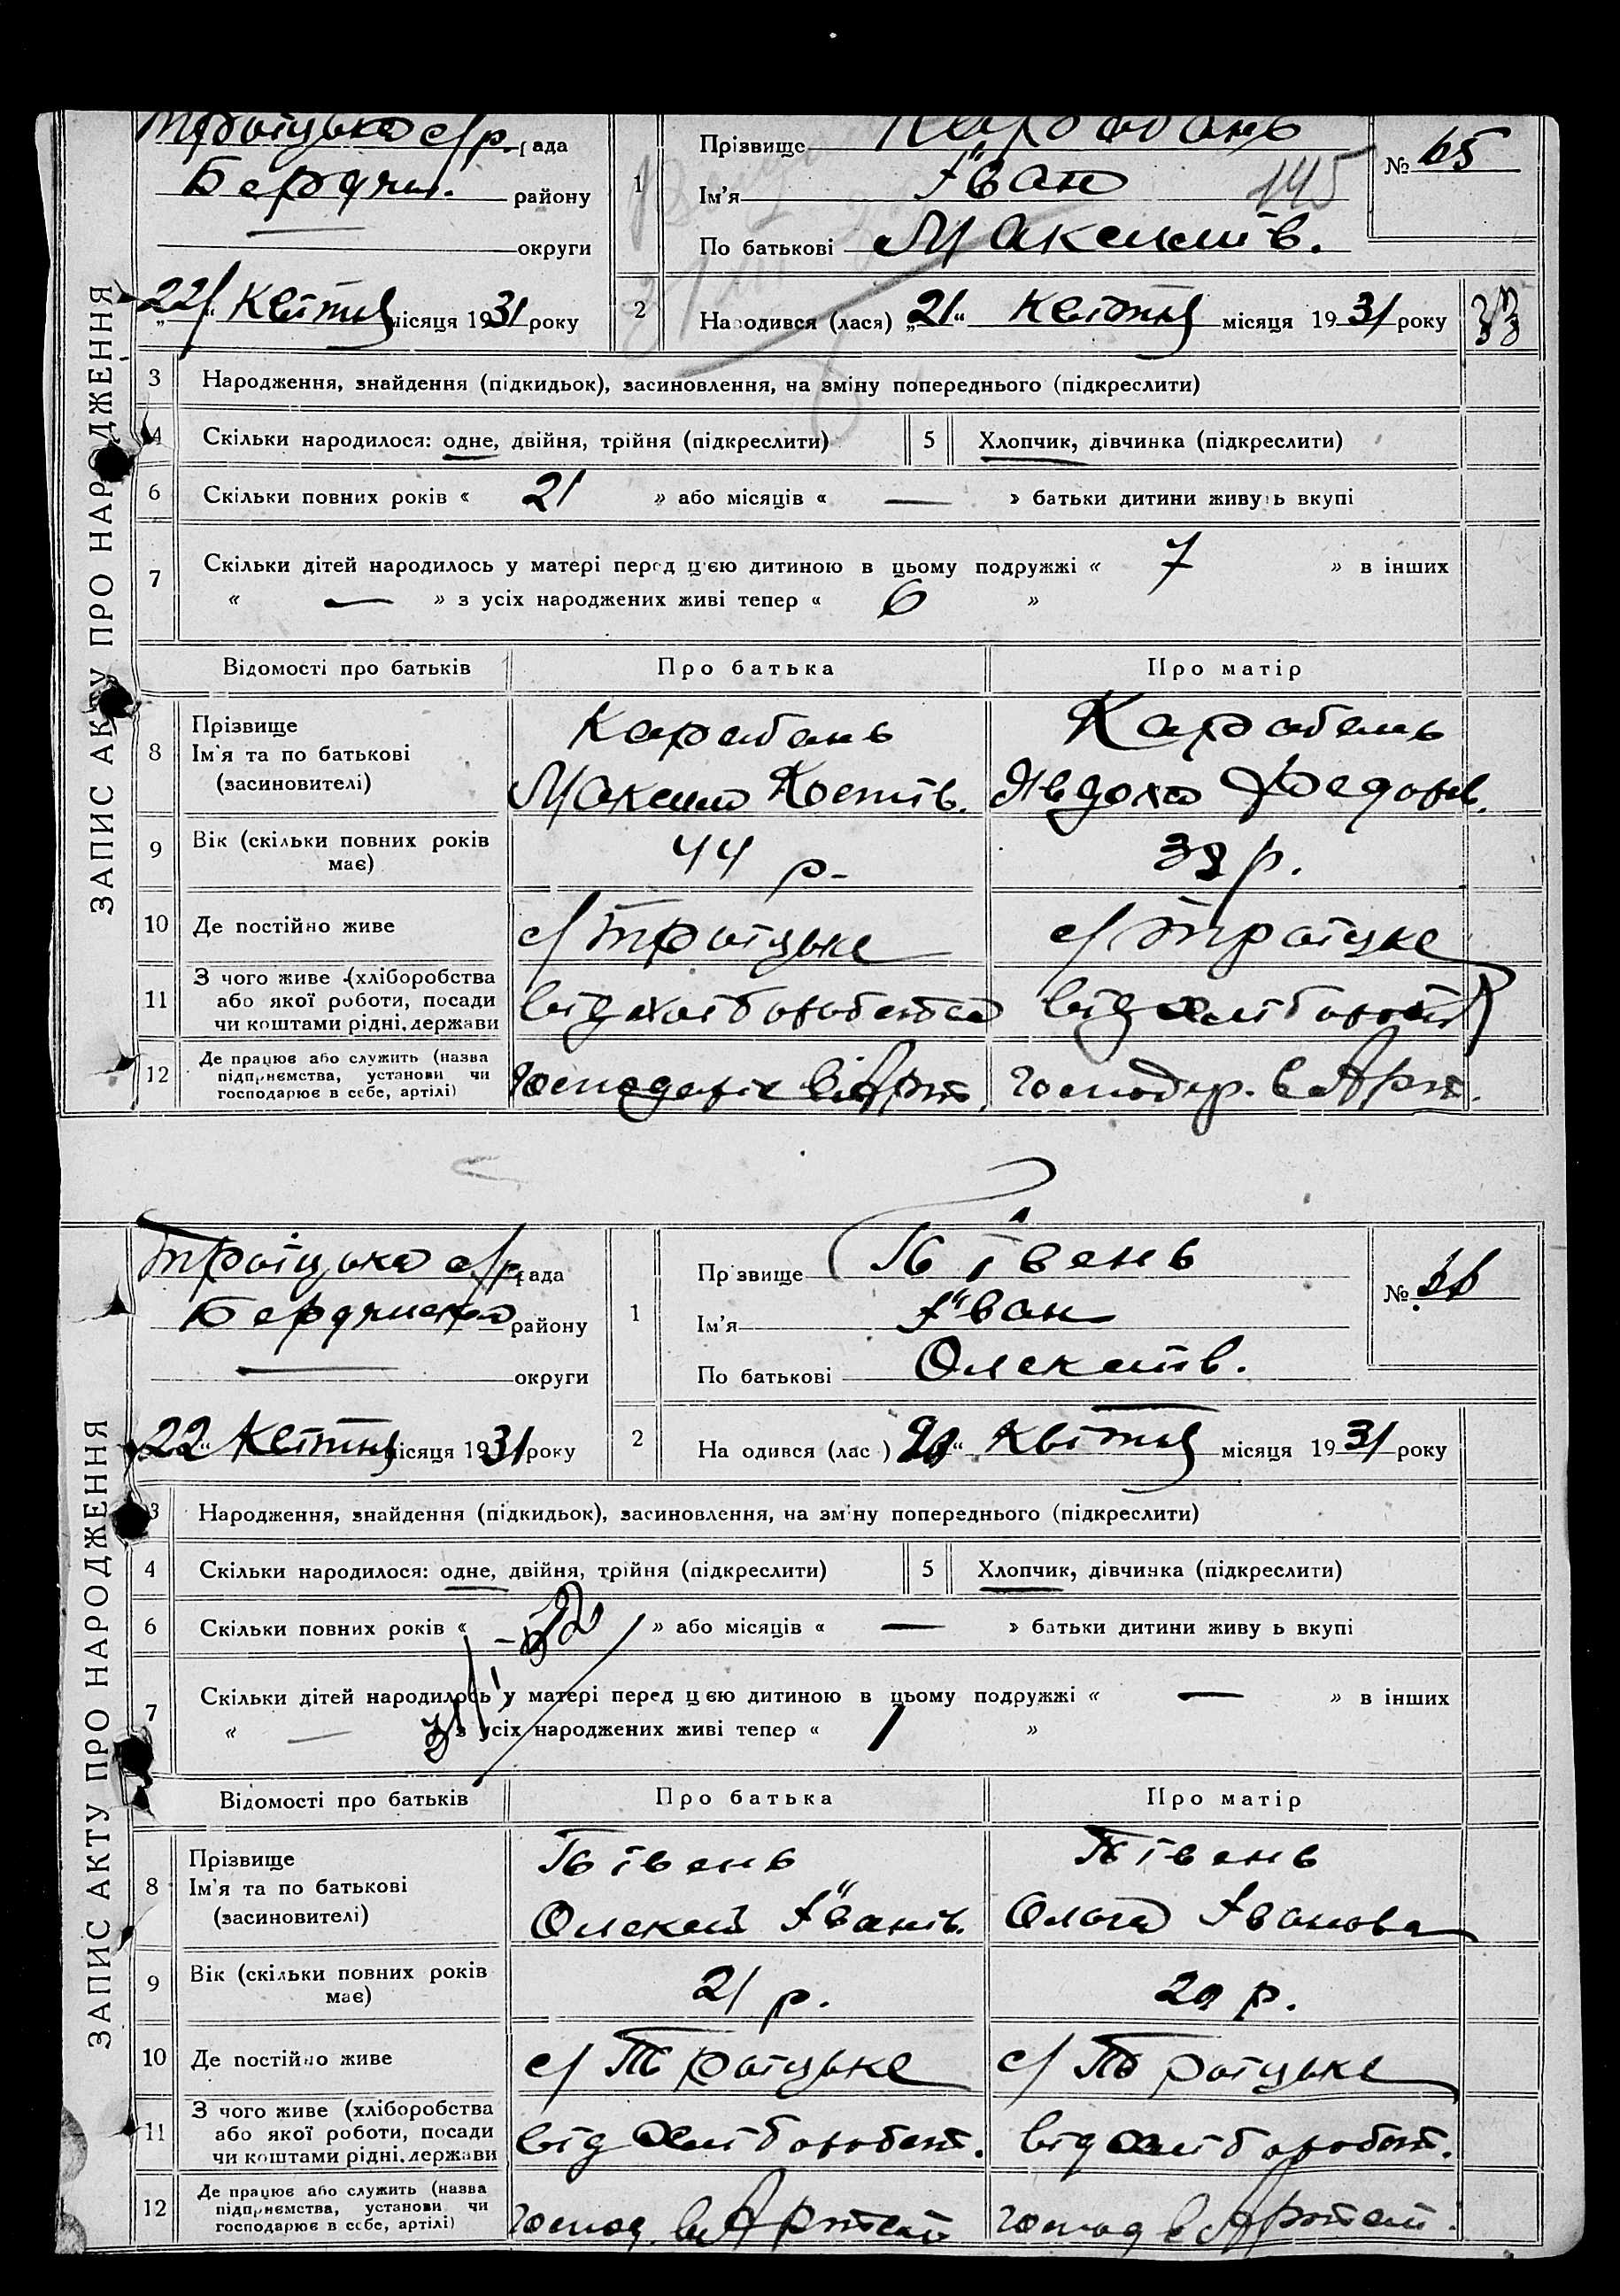 ЗАПИС АКТУ ПРО НАРОДЖЕННЯ
Троїцька с/р. рада
Бердян. району
округи
„22“ Квітня місяця 1931 року
1
Прізвище Карабань
Ім'я Іван
По батькові Максимів.
№ 65
145
2
Народився (лася) „21“ Квітня місяця 1931 року
3 Народження, знайдення (підкидьок), засиновлення, на зміну попереднього (підкреслити)
4 Скільки народилося: одне, двійня, трійня (підкреслити) 5 Хлопчик, дівчинка (підкреслити)
6 Скільки повних років « 21 » або місяців « — » батьки дитини живуть вкупі
7 Скільки дітей народилось у матері перед цією дитиною в цьому подружжі « 7 » в інших
« — » з усіх народжених живі тепер « 6 »
Відомості про батьків Про батька Про матір
8 Прізвище
Ім'я та по батькові
(засиновителі)
Карабань
Максим Костів.
Карабань
Явдоха Федорів.
9 Вік (скільки повних років
має)
44 р.
38 р.
10 Де постійно живе с/ Троїцьке с/ Троїцке
11 З чого живе (хліборобства
або якої роботи, посади
чи коштами рідні, держави
від хліборобства
від хлібороб
12 Де працює або служить (назва
підприємства, установи чи
господарює в себе, артілі)
Господарює в Арт.
Господар. в Арт.
ЗАПИС АКТУ ПРО НАРОДЖЕННЯ
Троїцька с/р. рада
Бердянська району
округи
„22“ Квітня місяця 1931 року
1
Прізвище Півень
Ім'я Іван
По батькові Олексіїв.
№ 66
2
Народився (лася) Квітня місяця 1931 року
3 Народження, знайдення (підкидьок), засиновлення, на зміну попереднього (підкреслити)
4 Скільки народилося: одне, двійня, трійня (підкреслити) 5 Хлопчик, дівчинка (підкреслити)
6 Скільки повних років « » або місяців « — » батьки дитини живуть вкупі
7 Скільки дітей народилось у матері перед цією дитиною в цьому подружжі « — » в інших
« — » з усіх народжених живі тепер « 1 »
Відомості про батьків Про батька Про матір
8 Прізвище
Ім'я та по батькові
(засиновителі)
Півень
Олексій Іванів.
Півень
Ольга Іванова
9 Вік (скільки повних років
має)
21 р.
20 р.
10 Де постійно живе с/ Троїцьке с/ Троїцьке
11 З чого живе (хліборобства
або якої роботи, посади
чи коштами рідні, держави
від хліборобст.
від хліборобст.
12 Де працює або служить (назва
підприємства, установи чи
господарює в себе, артілі)
Господ. в Артелі
Господ в Артелі.